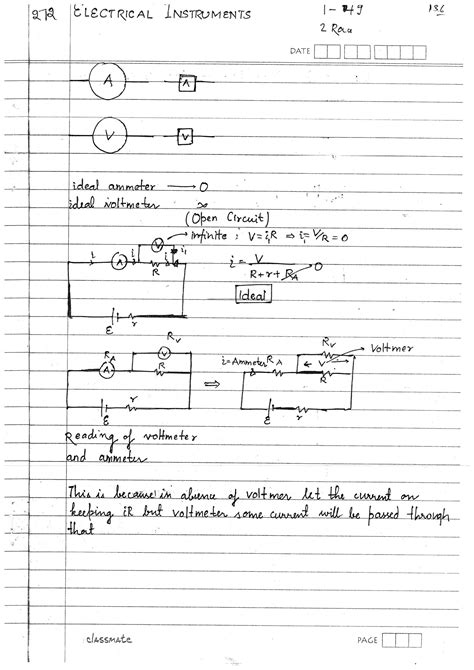 272 ELECTRICAL INSTRUMENTS 1-49 136
2 Rava
DATE
A A
V V
ideal ammeter → 0
ideal voltmeter ∞
(Open Circuit)
infinite ; V = i₁R ⇒ i₁ = V/R = 0
V
i A i R i₁
r
ε
i = V / (R + r + R_A) → 0
Ideal
R_A R_V
A V
R
r
ε
⇒
i = Ammeter R_A R_V Voltmer
V
R
r
ε
Reading of voltmeter
and ammeter
This is because in absence of voltmer let the current on
keeping iR but voltmeter some current will be passed through
that
classmate PAGE